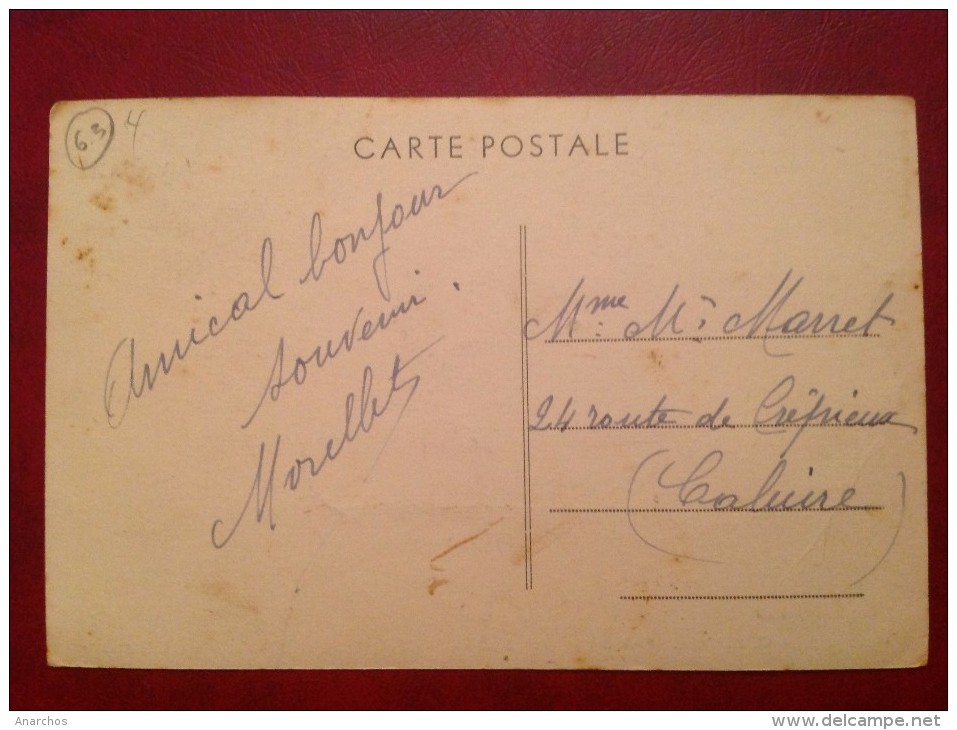 63
4
CARTE POSTALE
Amical bonjour
souvenir.
Morellet
Mme M. Marret
24 route de Crépieux
(Caluire)
Anarchos
www.delcampe.net